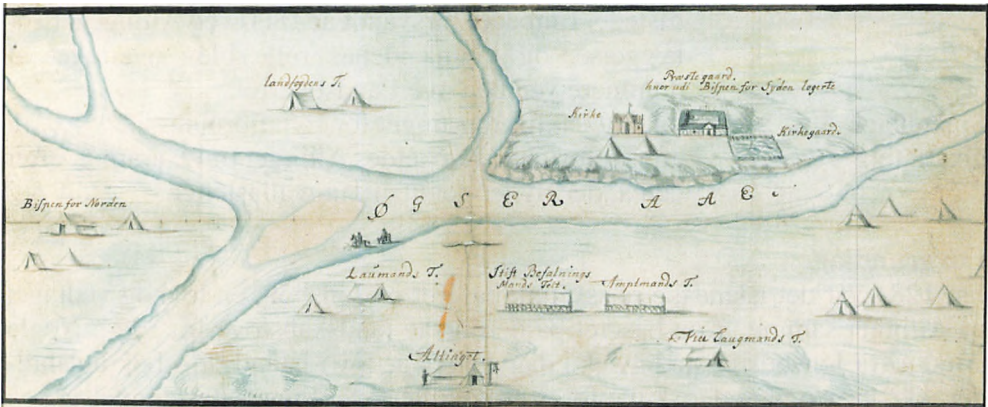 Landfogdens T.
Præstegaard.
huor udi Bispen for Syden logerte
Kirke
Kirkegaard.
Bispen for Norden
ØGSER AAE
Laumands T.
Stift Befalnings
Mands Telt.
Amptmands T.
Vice Laugmands T.
Altinget.